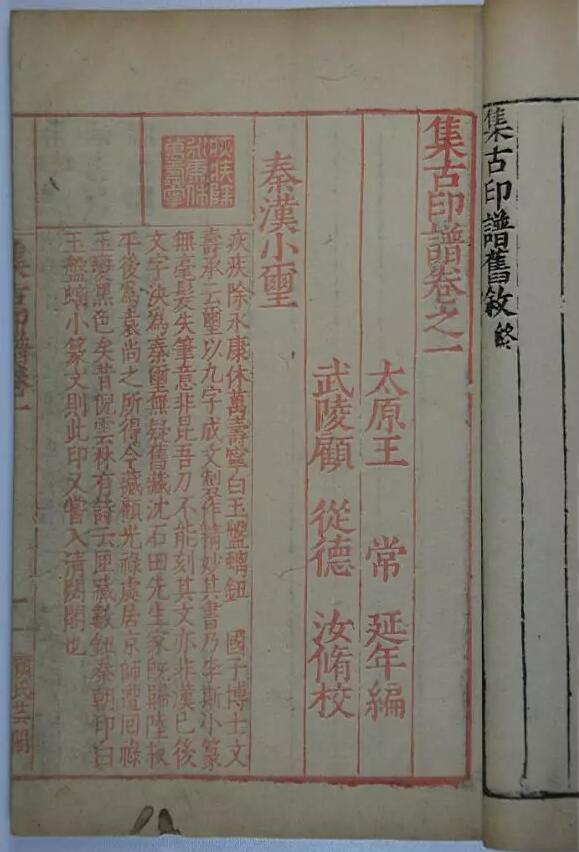 集古印譜舊敘 終
集古印譜卷之一
太原王 常 延年編
武陵顧 從德 汝脩校
秦漢小璽
疢疾除
永康休
萬壽寧
疢疾除永康休萬壽寧白玉盤螭鈕 國子博士文
壽承云璽以九字成文製作精妙其書乃李斯小篆
無毫髮失筆意非昆吾刀不能刻其文亦非漢已後
文字決為秦璽無疑舊藏沈石田先生家既歸陸叔
平後為袁尚之所得今藏顧光祿處居京師遭回祿
玉變黑色矣昔倪雲林有詩云匣藏數鈕秦朝印白
玉盤螭小篆文則此印又嘗入清閟閣也
集古印譜卷一
一
顧氏芸閣